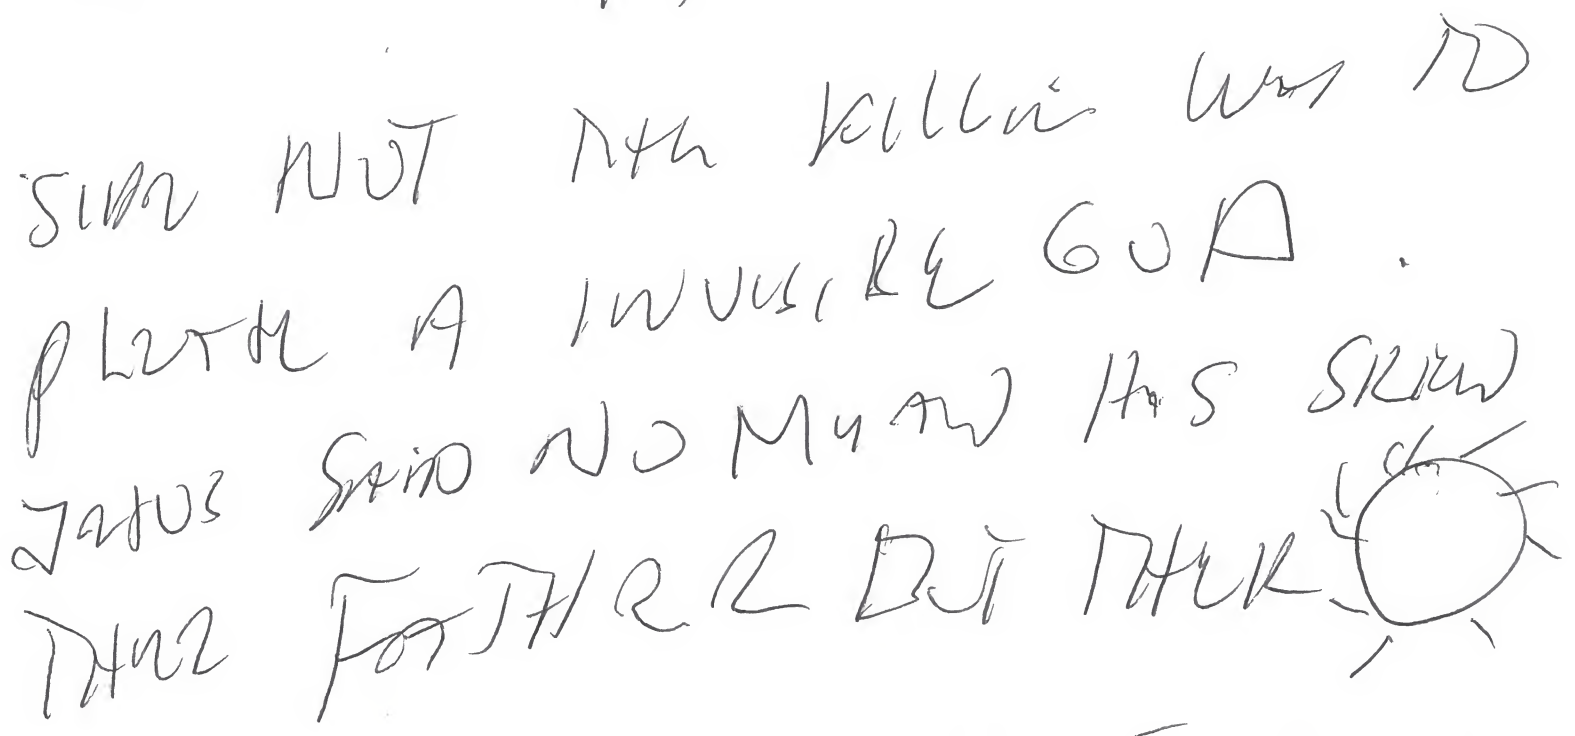 NOT THE KILLIN WAS TO
PLEASE A INVISIBLE GOD.
JESUS SAID NO MAN HAS SEEN
THE FATHER BUT THEIR